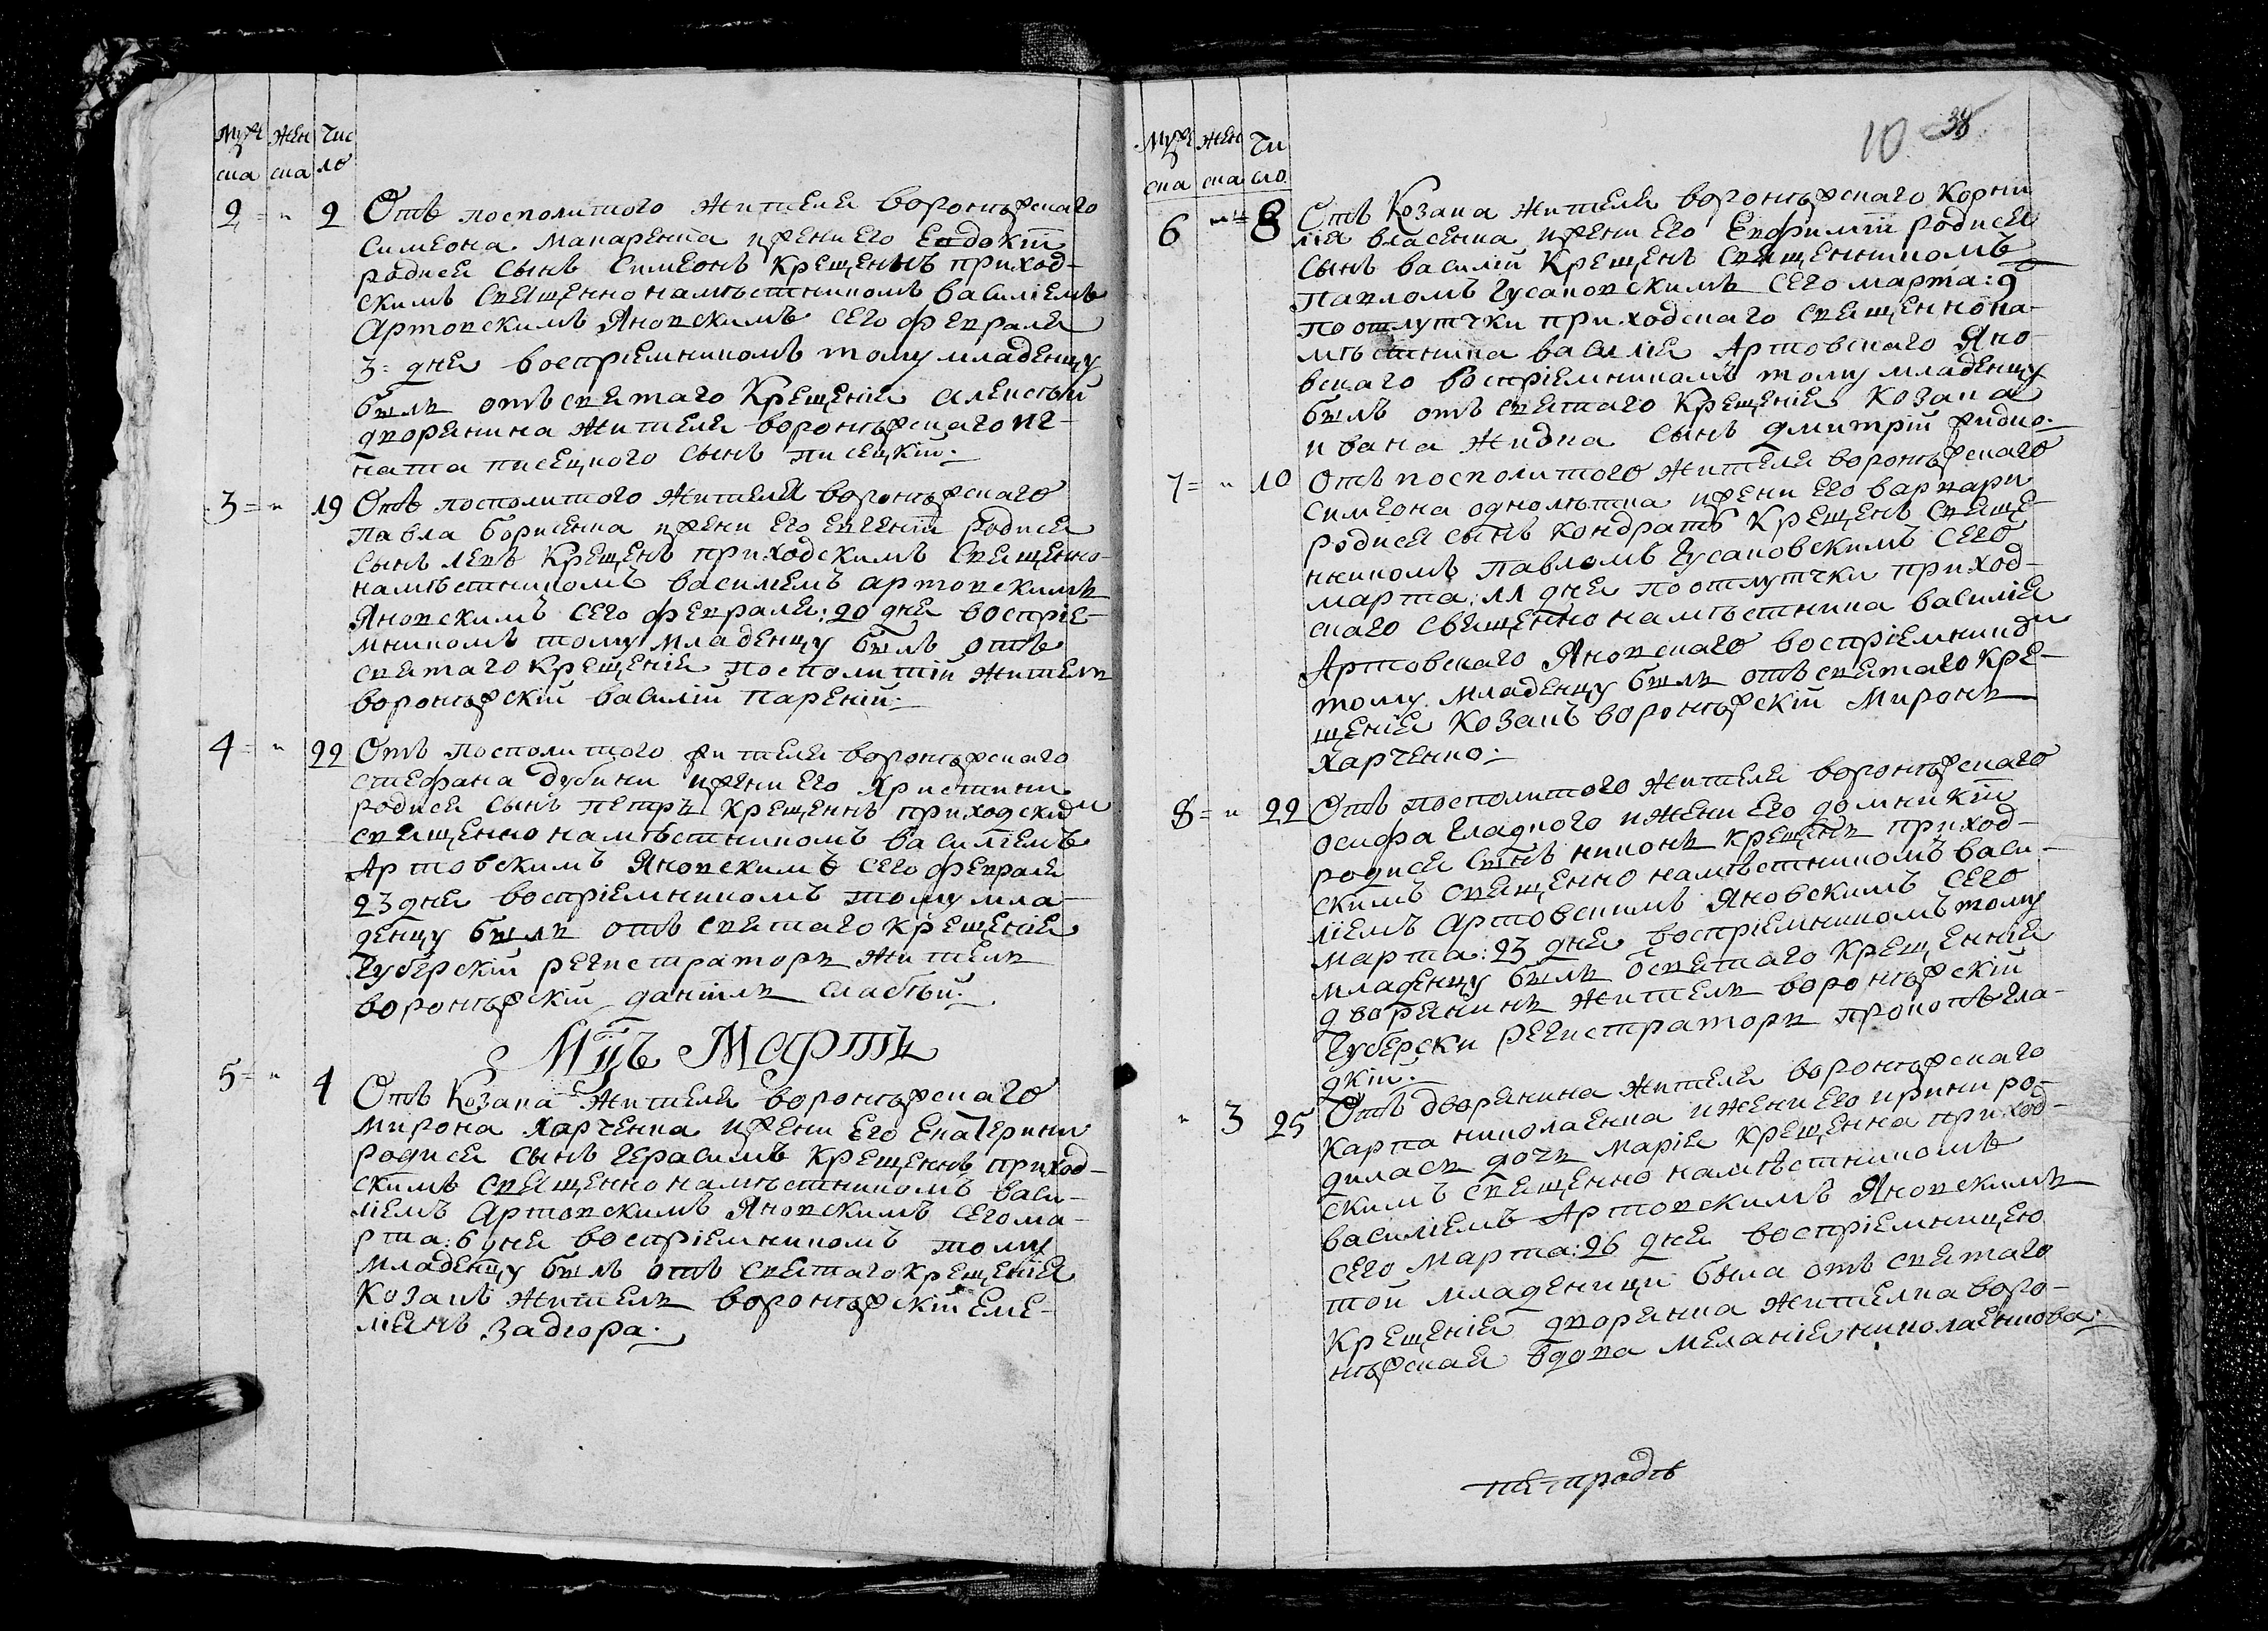 Муже Жен Чис
ска ска ло
2 = " 2 Отъ посполитого жителя воронѣжскаго
Симеона Макаренка ижени его Евдокіи
родися сынъ Симеонъ Крещеннъ приход-
скимъ Священнонамѣстникомъ василіемъ
Артовскимъ Яновскимъ сего февраля
3 = дня воспріемникомъ тому младенцу
былъ отъ святаго Крещенія алексѣй
дворянина жителя воронѣжскаго иг-
ната писецкого сынъ писецкій.
3 = " 19 Отъ посполитого жителя воронѣжскаго
Павла борисенка ижени его Евгеніи родися
сынъ левъ Крещенъ приходскимъ Священно-
намѣстникомъ василіемъ артовскимъ
Яновскимъ сего февраля: 20 дня воспріе-
мникомъ тому младенцу былъ отъ
святаго Крещенія посполитій житель
воронѣжскій василій пареній.
4 = " 22 Отъ посполитого жителя воронѣжскаго
стефана дубини ижени его Христини
родися сынъ петръ Крещеннъ приходским
священно намѣстникомъ василіемъ
Артовскимъ Яновскимъ сего февраля
23 дня воспріемникомъ тому мла-
денцу былъ отъ святаго Крещенія
Губерскій регистраторъ житель
воронѣжскій данило слабѣй.
Мцъ Мартъ
5 = " 4 Отъ Козака жителя воронѣжскаго
мирона Харченка ижени его Екатерини
родися сынъ Герасимъ Крещеннъ приход-
скимъ Священно намѣстникомъ васи-
ліемъ Артовскимъ Яновскимъ сего ма-
рта: 6 дня воспріемникомъ тому
младенцу былъ отъ святаго Крещенія
Козакъ житель воронѣжскій еме-
ліянъ Задгора.
10 38
Муже жен Чи
ска ска сло
6 " 8 Отъ Козака жителя воронѣжскаго Корни
лія власенка ижени его Евфиміи родися
сынъ василій Крещенъ Священникомъ
Павломъ Гусаковскимъ сего марта: 9
по отлутчки приходскаго священнона-
мѣстника василія Артовскаго Яно-
вскаго воспріемникомъ тому младенцу
былъ отъ святаго Крещенія Козака
ивана жидка сынъ дмитрій жидко.
7 = " 10 Отъ посполитого жителя воронѣжскаго
симеона однолѣтка ижени его варвари
родися сынъ Кондратъ Крещенъ Свяще
нникомъ Павломъ Гусаковскимъ сего
марта: 11 дня по отлутчки приход-
скаго священно намѣстника василія
Артовскаго Яновскаго воспріемником
тому младенцу былъ отъ святаго Кре-
щенія Козакъ воронѣжскій Миронъ
Харченко.
8 = " 22 Отъ посполитого жителя воронѣжскаго
осифа гладкого ижени его домникіи
родися сынъ никонъ крещенъ приход-
скимъ священно намѣстникомъ васи-
ліемъ Артовскимъ Яновскимъ сего
марта: 23 дня воспріемникомъ тому
младенцу былъ о святаго Крещенния
дворянинъ житель воронѣжскій
Губерски регистраторъ прокопъ гла-
дкій.
" 3 25 Отъ дворянина жителя воронѣжскаго
Карпа николаенка ижени его ирини ро-
дилася дочь марія Крещенна приход-
скимъ священно намѣстникомъ
василіемъ Артовскимъ Яновскимъ
сего марта: 26 дня воспріемницею
той младеници была отъ святаго
Крещенія дворянка жителка воро-
нѣжская вдова меланія николаенкова.